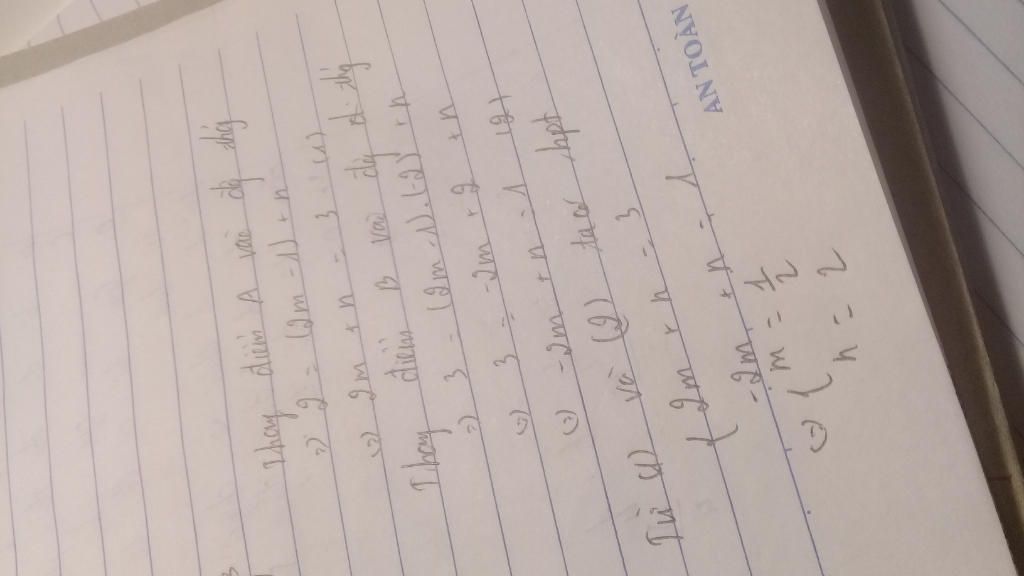 Thay điểm A vào đg thg
=) 2 = (2m -1) + n
(=) 2m + n = 3 (1)
Thay điểm B vào đg th�g
=) 3 = (2m -1).(-2) + n
(=) 3 = -2m + 2 + n
(=) -2m + n = 1 (2)
Từ (1) và (2) ta có hpt
{ 2m + n = 3
-2m + n = 1
(=) { m = 1/2
n = 2
AN TOÀN